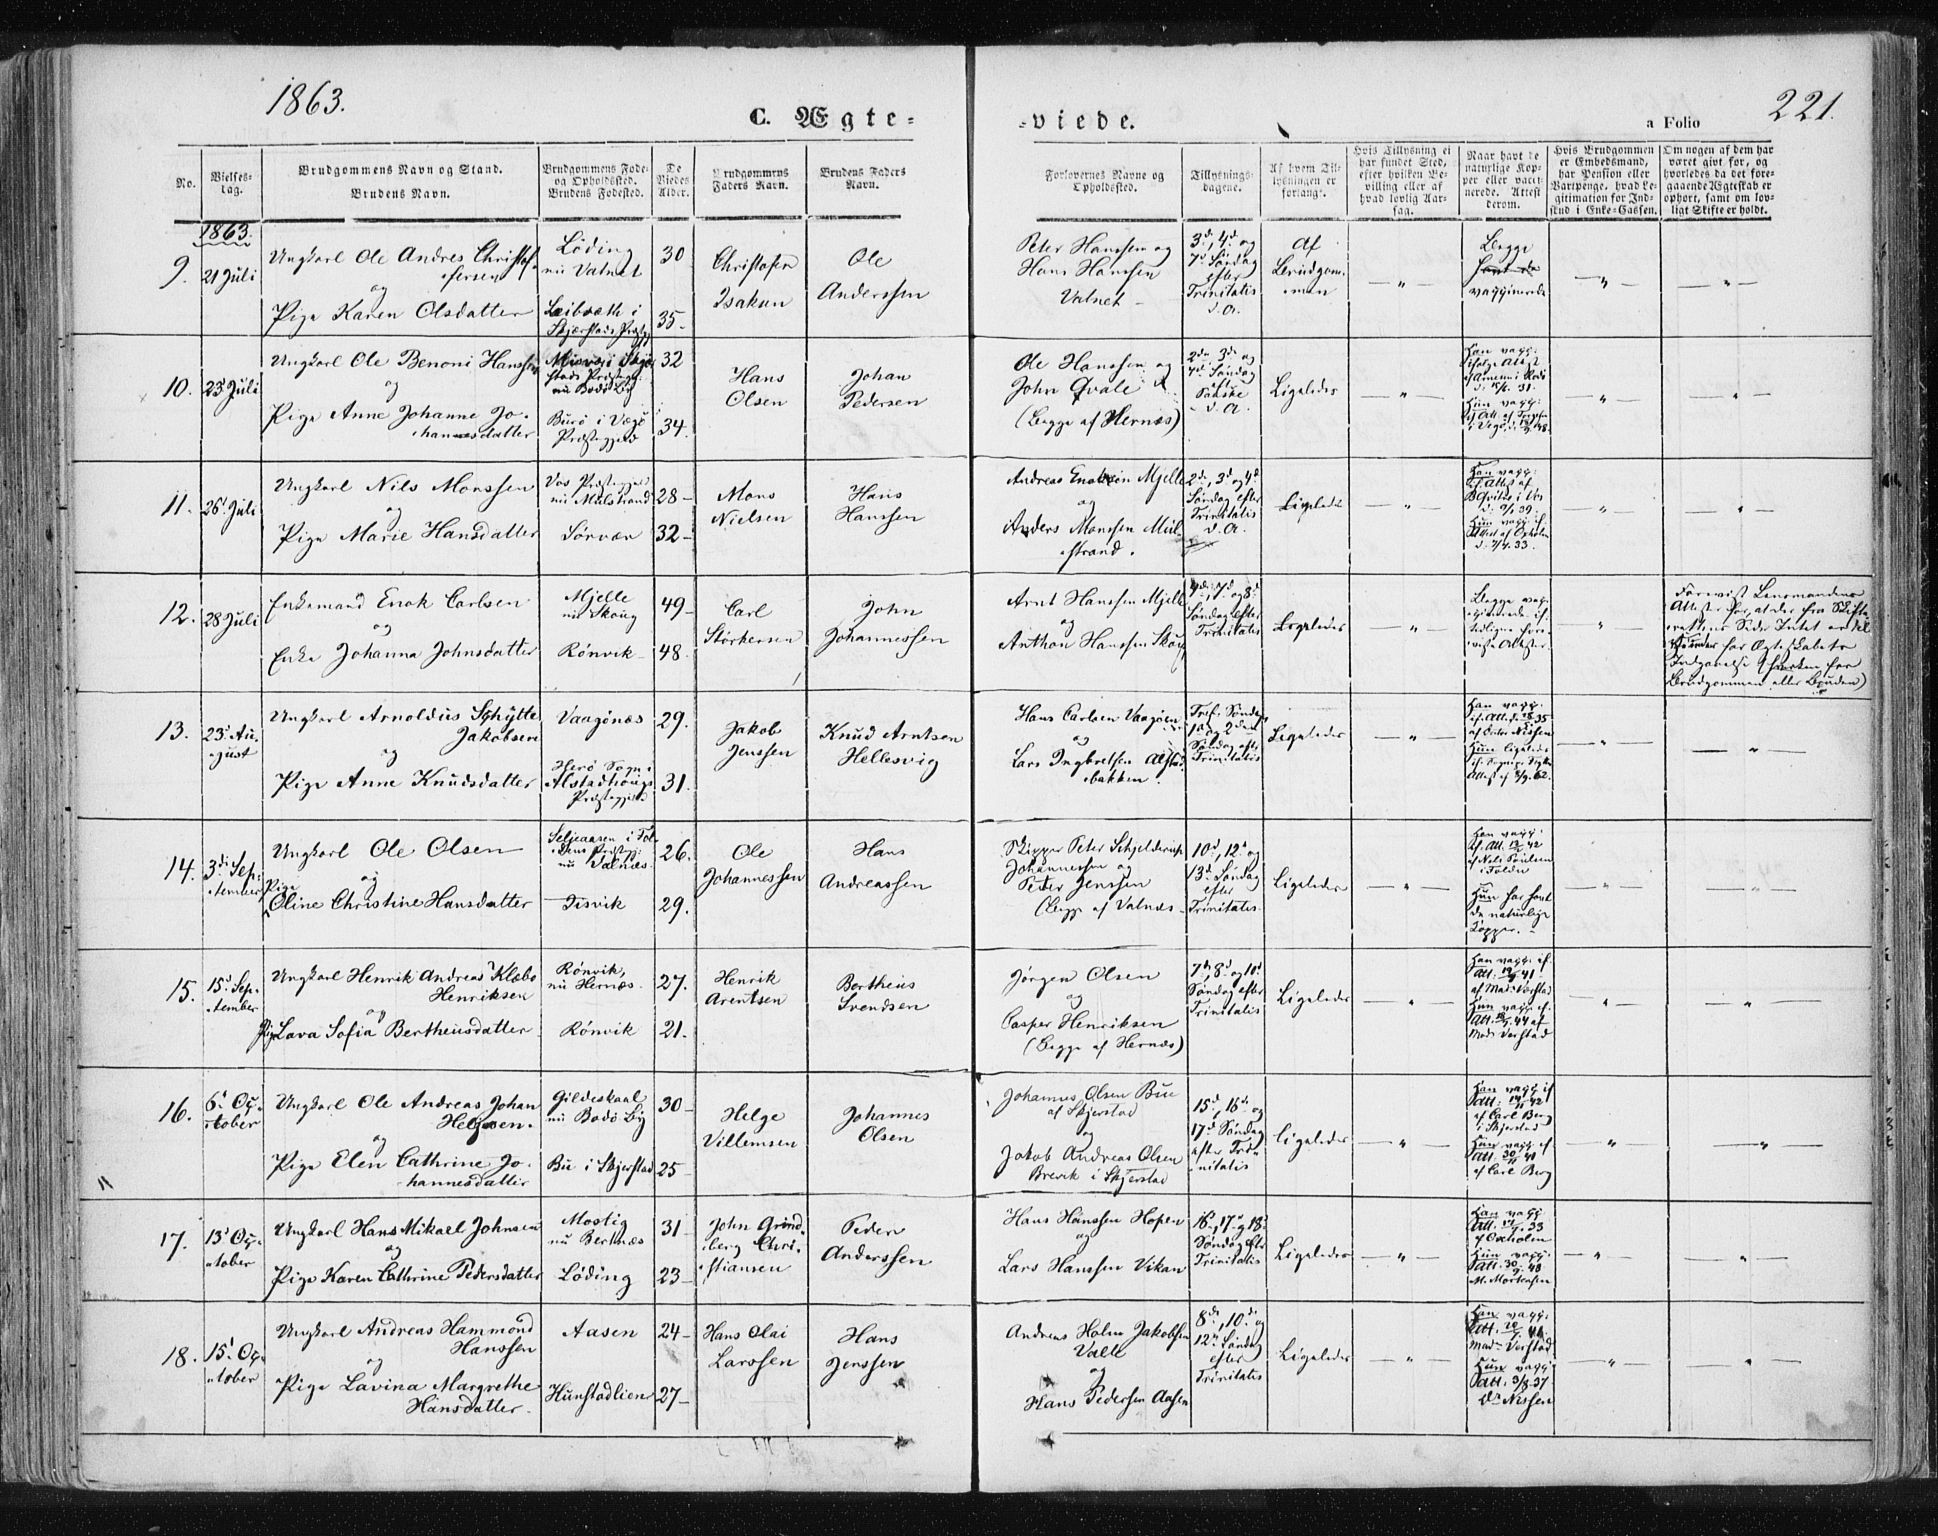 1863.
C. Ægte=
=viede.
a Folio
221.
No.
Vielses-
dag.
Brudgommens Navn og Stand.
Brudens Navn.
Brudgommens Føde-
og Opholdssted.
Brudens Fødested.
De
Viedes
Alder.
Brudgommens
Faders Navn.
Brudens Faders
Navn.
Forlovernes Navne og
Opholdssted.
Tillysnings-
dagene.
Af hvem Til-
lysningen er
forlangt.
Hvis Tillysning ei
har fundet Sted,
efter hvilken Be-
villing eller af
hvad lovlig Aar-
sag.
Naar havt de
naturlige Kop-
per eller vacci-
nerede. Attest
derom.
Hvis Brudgommen
er Embedsmand,
har Pension eller
Vartpenge, hvad Le-
gitimation for Ind-
skud i Enke-Cassen.
Om nogen af dem har
været gift før, og
hvorledes da det fore-
gaaende Ægteskab er
ophørt, samt om lov-
ligt Skifte er holdt.
1863.
9.
21 Juli
Ungkarl Ole Andres Christof-
fersen
og
Pige Karen Olsdatter
Löding
nu Valnes
Leibvath i
Skjærstads Præstgj
30
35
Christofer
Isaksen
Ole
Anderssen
Peter Hanssen og
Hans Hanssen
Valnes
3d, 4d og
7d Söndag
efter
Trinitatis
d. A.
Af
Brudgom-
men
Begge
vaccinerede
10.
23d Juli
Ungkarl Ole Benoni Hanssen
og
Pige Anne Johanne Jo-
hannesdatter
Misvær i Skjer-
stads Præstegj:
nu Bodö By
Burö i Vegö
Præstegjeld
32
34.
Hans
Olsen
Johan
Pedersen
Ole Hanssen og
John Qvale
(Begge af Hernæs)
2de, 3de og
4de Söndag
eft.
Paaske
d. A.
Ligeledes
11.
26d Juli
Ungkarl Nils Monssen
og
Pige Marie Hansdatter
Vos Præstegjeld
nu Mulstrand
Sörvær
28
32
Mons
Nielsen
Hans
Hanssen
Andreas Enoksen Mjelle
og
Anders Monssen Mul-
strand.
2d, 3d og 4d
Söndag efter
Trinitatis
d. A.
Ligeledes
12.
28 Juli
Enkemand Enok Carlsen
og
Enke Johanna Johnsdatter
Mjelle
nu Skoug
Rönvik
49
48.
Carl
Störkersen
John
Johannessen
Arnt Hanssen Mjelle
og
Anthon Hanssen Skoug
4de, 7d og 8d
Söndag efter
Trinitatis
Ligeledes
Begge vac-
cinerede if.
tidligere fore-
viste Attester.
Forevist Lensmandens
Attester for, at der fra Skifte-
rettens Side Intet er til
Hinder for Ægteskabets
Indgaaelse (hverken for
Brudgommen eller Bruden)
13.
23d Au-
gust
Ungkarl Arnoldus Schytte
Jakobsen
og
Pige Anne Knudsdatter
Vaagönæs
Herö Sogn i
Alstadhougs
Præstegjeld
29.
31.
Jakob
Jenssen
Knud Arntsen
Hellesvig
Hans Carlsen Vaagöen
og
Lars Ingbretsen Alstad-
bakken.
Tref. Söndag
1d og 2den
Söndag efter
Trinitatis
Ligeledes
14.
3di Sep-
tember
Ungkarl Ole Olsen
og
Pige
Oline Christine Hansdatter
Seljeaasen i Fol-
dens Præstegj:
nu Valnæs
Tisvik
26.
29.
Ole
Johannessen
Hans
Andreassen
Skipper Peter Schjelderup
Johannessen og
Peder Jenssen
(Begge af Valnæs
10d, 12te og
13d Söndag
efter
Trinitatis.
Ligeledes
Hun har havt
de naturlige
Kopper.
15.
15d Sep-
tember
Ungkarl Henrik Andreas Klæbo
Henriksen
og
Pige Lava Sofia Bertheusdatter
Rönvik,
nu Hernæs
Rönvik
27.
21.
Henrik
Arentsen
Bertheus
Svendsen
Jörgen Olsen
og
Casper Henriksen
(Begge af Hernæs)
7d, 8d og 10d
Söndag efter
Trinitatis
Ligeledes
16.
6d Oc-
tober
Ungkarl Ole Andreas Johan
Helgesen.
og
Pige Elen Cathrine Jo-
hannesdatter
Gildeskaal
nu Bodö By
Bu i Skjerstad
30
25
Helge
Villemsen
Johannes
Olsen
Johannes Olsen Bue
af Skjerstad
og
Jakob Andreas Olsen
Brevik i Skjerstad
15d, 16de og
17d Söndag
efter Tri-
nitatis
Ligeledes
17.
13d Oc-
tober
Ungkarl Hans Mikael Johnsen
og
Pige Karen Cathrine Pedersdatter
Mostig
nu Bertnæs
Löding
31
23
John Grönd-
berg Chri-
stiansen
Peder
Anderssen
Hans Hanssen Hopen
og
Lars Hanssen Vikan
16d, 17d og 18d
Söndag eft.
Trinitatis
Ligeledes
18.
15d Oc-
tober
Ungkarl Andreas Hammond
Hanssen
og
Pige Lavina Margrethe
Hansdatter
Aasen
Hunstadlien
24
27
Hans Olai
Larssen
Hans
Jenssen
Andreas Holm Jakobsen
Valle
og
Hans Pedersen Aasen
8de, 10de og
12te Söndag
efter
Trinitatis
Ligeledes